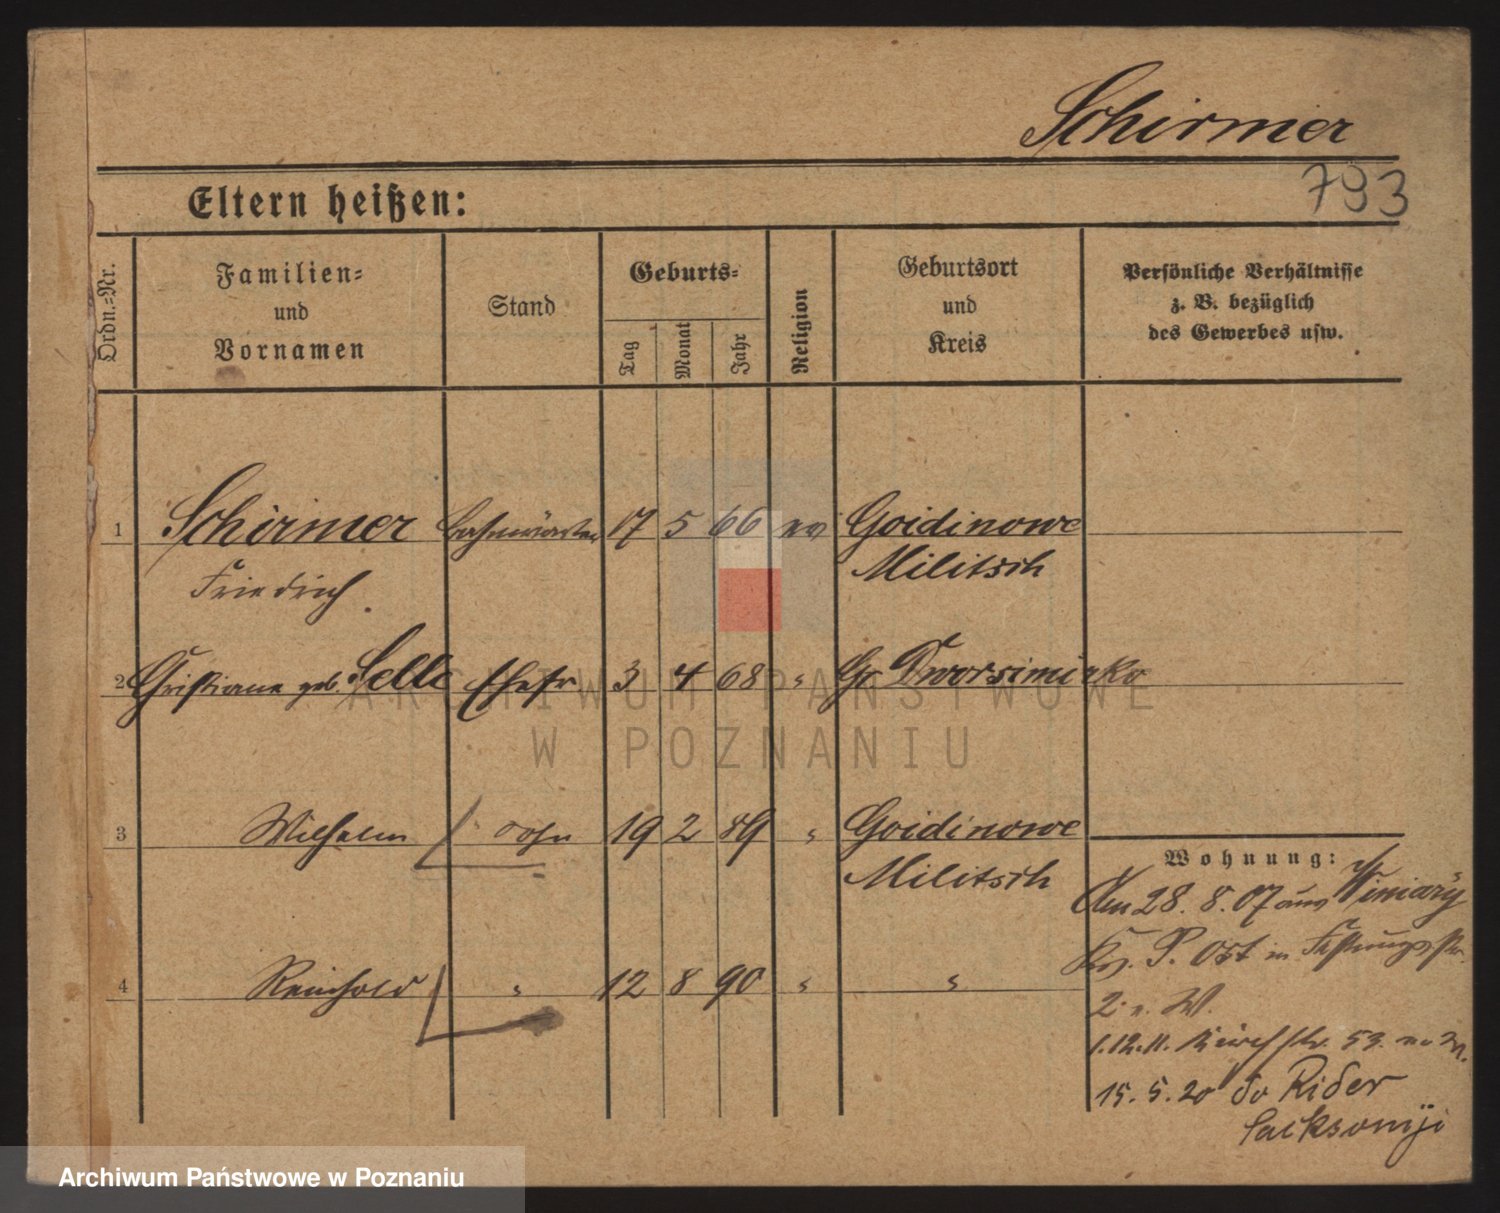 Schirmer
793
Eltern heißen:
Ordn.-Nr.
Familien-
und
Vornamen
Stand
Geburts-
Tag
Monat
Jahr
Religion
Geburtsort
und
Kreis
Persönliche Verhältnisse
z. B. bezüglich
des Gewerbes usw.
1 Schirmer Bahnwärter 17 5 66 ev Goidinowe
Friedrich Militsch
2 Christiane geb. Selle Ehefr 3 4 68 " Gr. Dworsimirko
3 Wilhelm Sohn 19 2 89 " Goidinowe
Militsch
4 Reinhold " 12 8 90 " "
Wohnung:
Am 28. 8. 07 aus Winiary
P. Ost in Festungsstr.
2 n. W.
1.12.11. 53.
15. 5. 20 do Rider
Sacksonji
ARCHIWUM PAŃSTWOWE
W POZNANIU
Archiwum Państwowe w Poznaniu